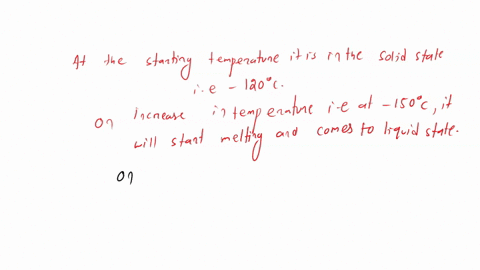 At the starting temperature it is in the solid state
i.e -120°c.
On increase in temperature i.e at -150°c, it
will start melting and comes to liquid state.
On